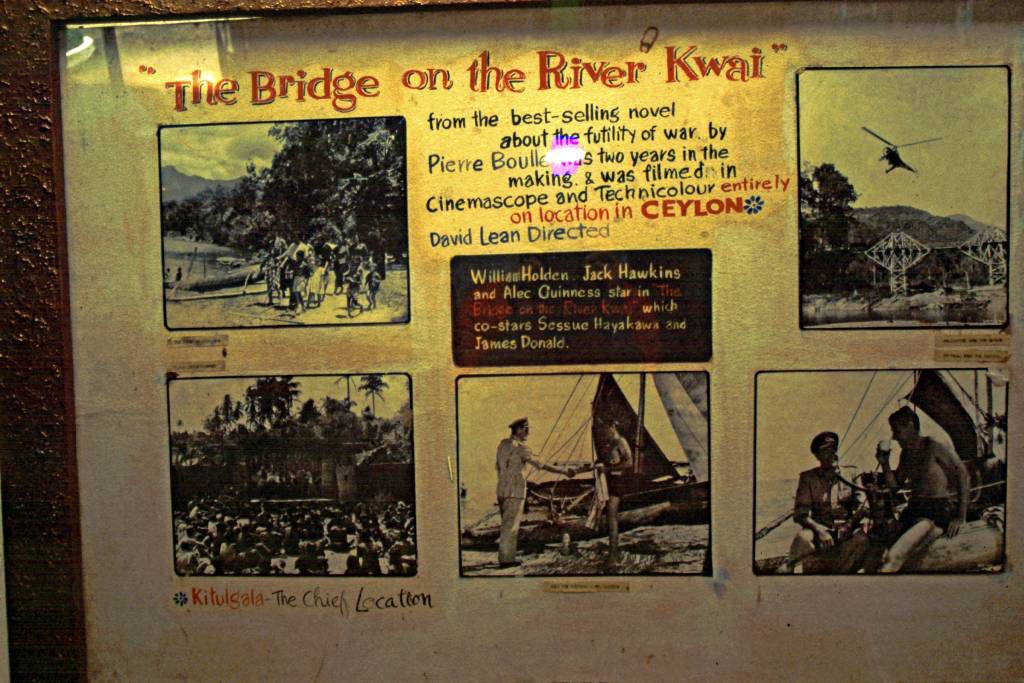 "The Bridge on the River Kwai"
from the best-selling novel
about the futility of war by
Pierre Boulle was two years in the
making & was filmed in
Cinemascope and Technicolour entirely
on location in CEYLON
David Lean Directed
William Holden Jack Hawkins
and Alec Guinness star in "The
Bridge on the River Kwai" which
co-stars Sessue Hayakawa and
James Donald.
Kitulgala-The Chief Location